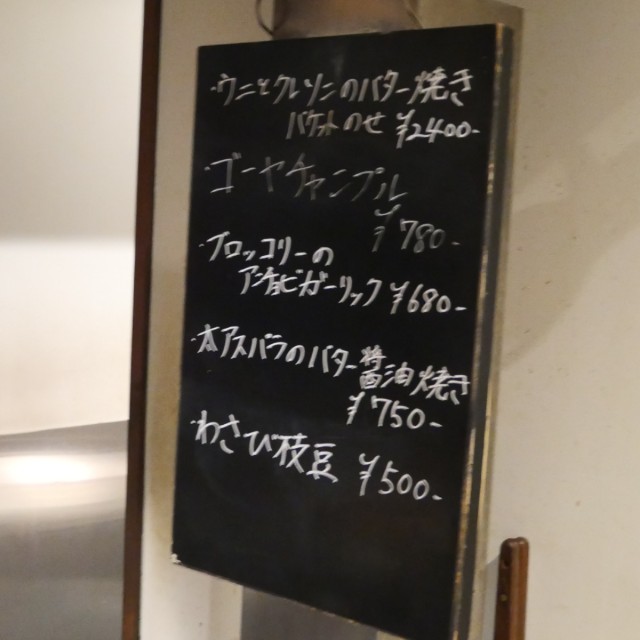 ・ウニとクレソンのバター焼き
バケットのせ ¥2400-
・ゴーヤチャンプル
¥780-
・ブロッコリーの
アンチョビガーリック ¥680-
・本アスパラのバター醤油焼き
¥750-
・わさび枝豆 ¥500-